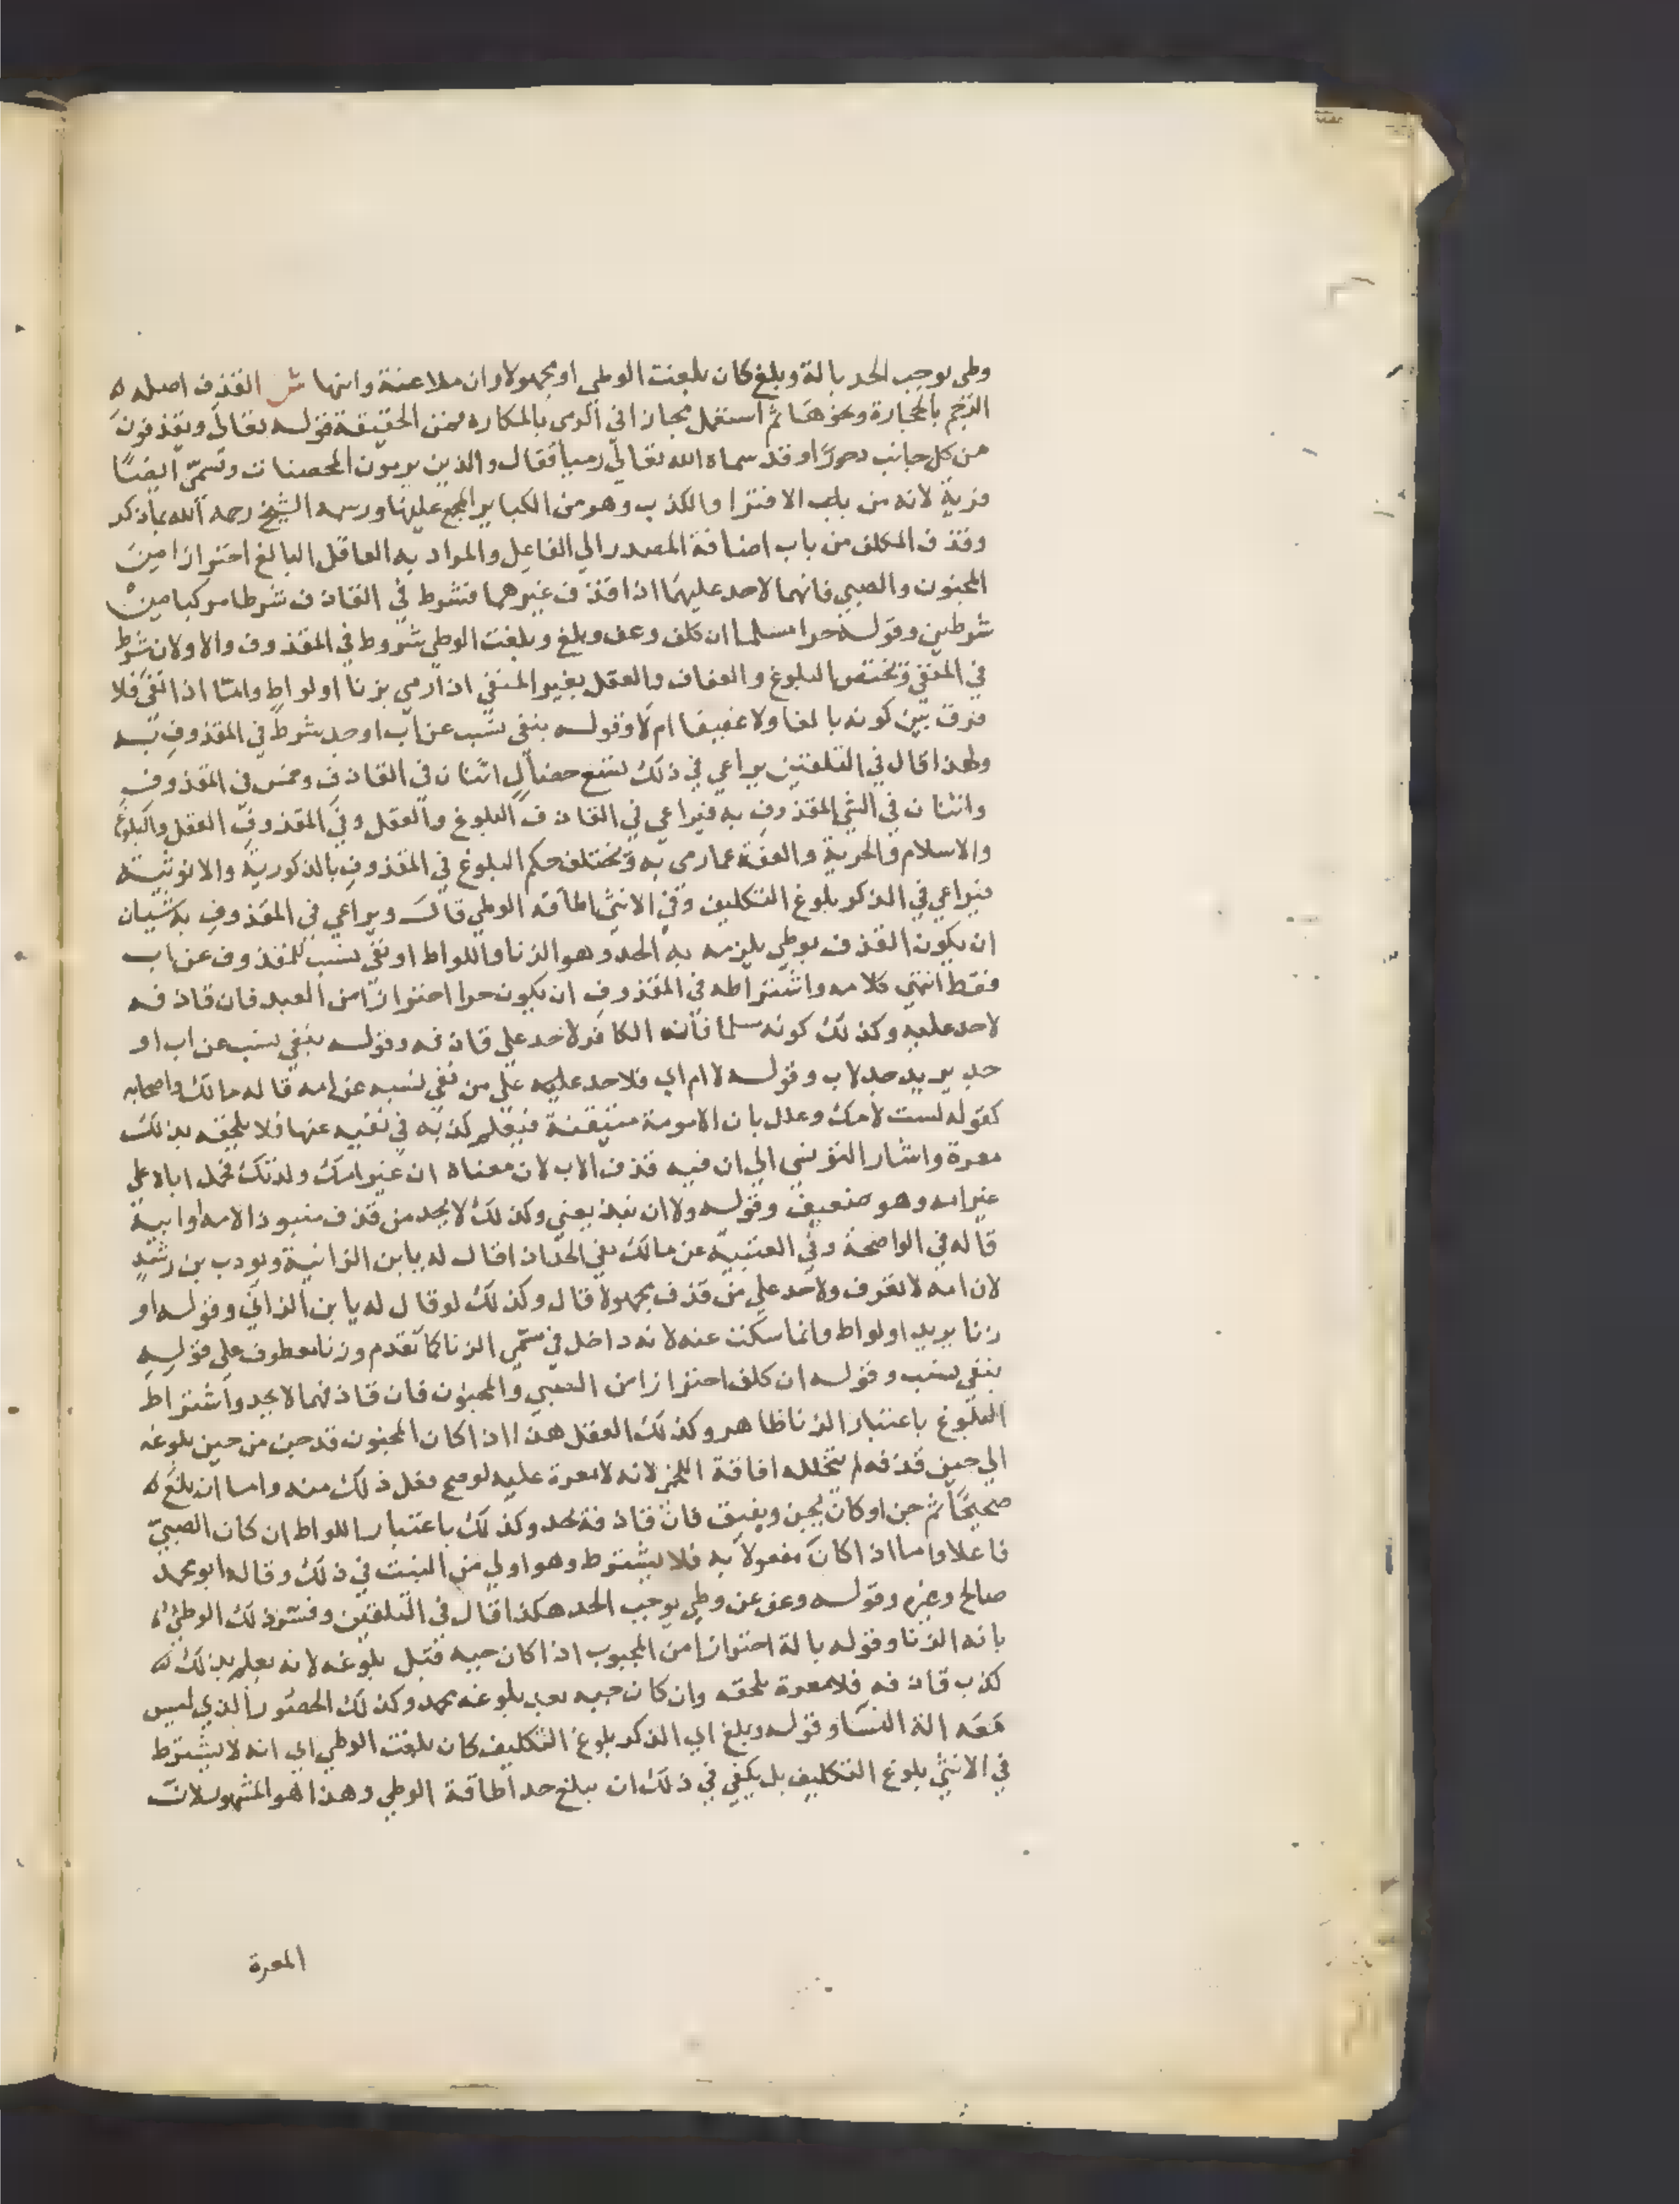 وطي يوجب الحد بالة وبلغ كان بلغت الوطي او مجهولا وان ملاعنة وابنها ش القذف اصله
الرجم بالحجارة ونحوها ثم استعمل مجازا في الرمي بالمكاره فمن الحقيقة قوله تعالى ويقذفون
من كل جانب دحورا وقد سماه الله تعالي رميا فقال والذين يرمون المحصنات وتسمى ايضا
فرية لانه من باب الافترا والكذب وهو من الكباير المجمع عليها ورسمه الشيخ رحمه الله بما ذكر
وقذف المكلف من باب اضافة المصدر الي الفاعل والمراد به العاقل البالغ احترازا من
المجنون والصبي فانهما لا حد عليهما اذا قذف غيرهما فشرط في القاذف شرطا مركبا من
شرطين وقوله حرا مسلما ان كلف وعف وبلغ وبلغت الوطي شروط في المقذوف والاولان شرط
في المنفي ويختص البلوغ والعفاف والعقل بغير المنفي اذا رمي بزنا او لواط وامتا اذا نفي فلا
فرق بين كونه بالغا ولا عفيفا ام لا وقوله بنفي نسب عن اب او جد شرط في المقذوف به
ولهذا قال في التلقين يراعي في ذلك تسع خصال اثنان في القاذف وخمس في المقذوف
واثنان في الشي المقذوف به فيراعي في القاذف البلوغ والعقل وفي المقذوف العقل والبلوغ
والاسلام والحرية والعفة عما رمي به ويختلف حكم البلوغ في المقذوف بالذكورية والانوثية
فيراعي في الذكر بلوغ التكليف وفي الانثي اطاقة الوطي قال ويراعي في المقذوف به شيان
ان يكون القذف بوطي يلزمه به الحد وهو الزنا واللواط او نفي نسب للمقذوف عن اب
فقط انتهي كلامه واشتراطه في المقذوف ان يكون حرا احترازا من العبد فان قاذفه
لا حد عليه وكذلك كونه مسلما فانه الكافر لا حد علي قاذفه وقوله بنفي نسب عن اب او
جد يريد جد لاب وقوله لا ام اي فلا حد عليه على من نفي نسبه عن امه قاله مالك واصحابه
كقوله لست لامك وعلل بان الامومة متيقنة فيعلم كذبه في نفيه عنها فلا يلحقه بذلك
معرة واشار التونسي الي ان فيه قذف الاب لان معناه ان غير امك ولدتك فحمل اباه علي
غير امه وهو ضعيف وقوله ولا ان نبذ يعني وكذلك لا يحد من قذف منبوذا لامه او ابيه
قاله في الواضحة وفي العتبية عن مالك نفي الحد اذا قال له يا ابن الزانية ويودب بن رشد
لان امه لا تعرف ولا حد علي من قذف مجهولا قال وكذلك لو قال له يا بن الزاني وقوله او
زنا يريد او لواط وانما سكت عنه لانه داخل في سمي الزنا كما تقدم وزنا معطوف علي قوله
بنفي نسب وقوله ان كلف احترازا من الصبي والمجنون فان قاذفهما لا يحد واشتراط
البلوغ باعتبار الزنا ظاهر وكذلك العقل هذا اذا كان المجنون قد جن من حين بلوغه
الي حين قذفه لم تتخلله افاقة اللخمي لانه لا معرة عليه لو صح فعل ذلك منه واما ان بلغ
صحيحا ثم جن او كان يجن ويفيق فان قاذفه يحد وكذلك باعتبار اللواط ان كان الصبي
فاعلا واما اذا كان مفعولا به فلا يشترط وهو اولي من البنت في ذلك وقاله ابو محمد
صالح وغيره وقوله وعف عن وطي يوجب الحد هكذا قال في التلقين وفسر ذلك الوطي
بانه الزنا وقوله بالة احترازا من المجبوب اذا كان جبه قبل بلوغه لانه يعلم بذلك
كذب قاذفه فلا معرة تلحقه وان كان جبه بعد بلوغه يحد وكذلك الحصور الذي ليس
معه الة النسا وقوله وبلغ اي الذكر بلوغ التكليف كان بلغت الوطي اي انه لا يشترط
في الانثي بلوغ التكليف بل يكفي في ذلك ان تبلغ حد اطاقة الوطي وهذا هو المشهور لان
المعرة